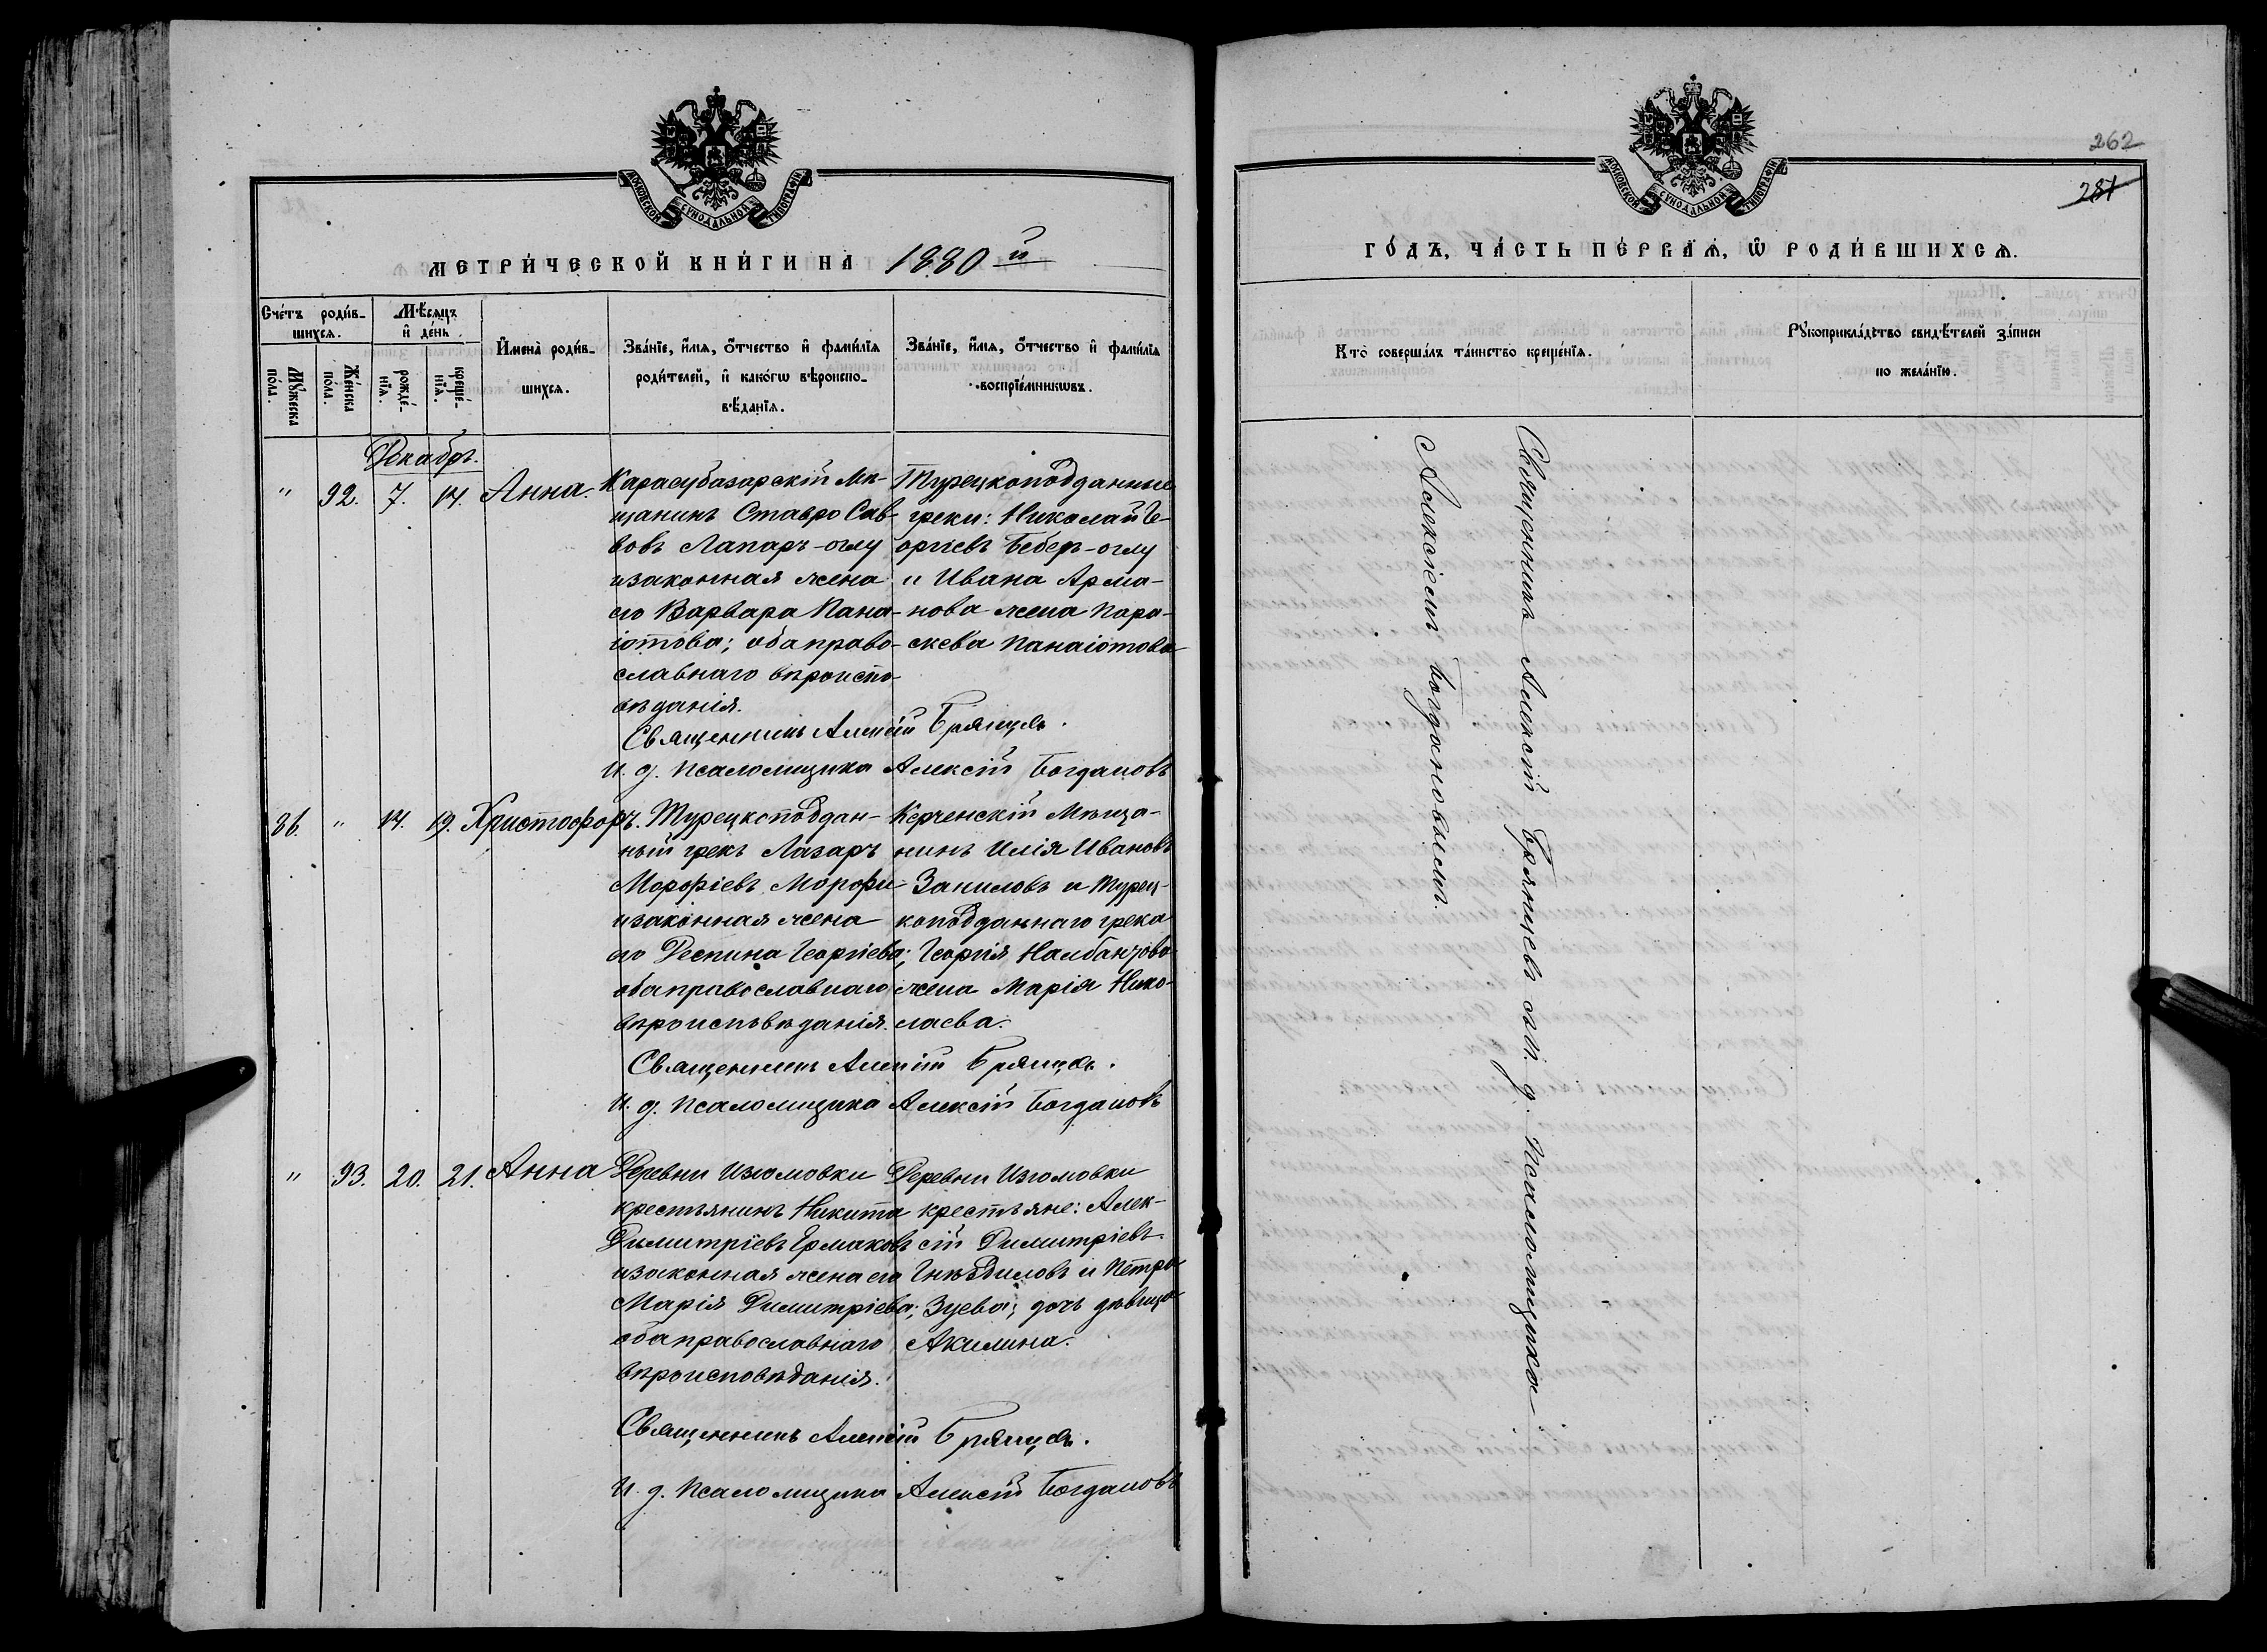 МОСКОВСКОЙ СѴНОДАЛЬНОЙ ТИПОГРАФІИ
МЕТРИ́ЧЕСКОЙ КНИ́ГИ НА 1880й
Сче́тъ роди́в-
шихся.
Мѣ́сяцъ
и҆ де́нь.
Мꙋ́жеска
по́ла.
Же́нска
по́ла.
рожде́-
нїѧ.
креще́-
нїѧ.
И҆мена̀ роди́в-
шихся.
Зва́нїе, и҆́мѧ, ѻ҆́тчество и҆ фами́лїѧ
роди́телей, и҆ како́гѡ вѣроиспо-
вѣ́данїѧ.
Зва́нїе, и҆́мѧ, ѻ҆́тчество и҆ фами́лїѧ
воспрїе́мникѡвъ.
Декабрь.
" 92. 7. 14. Анна.
Карасубазарскій Мѣ-
щанинъ Ставро Сав-
вовъ Лапаръ-оглу
и законная жена
его Варвара Пана-
іотова; оба право-
славнаго вѣроиспо-
вѣданія.
Турецкоподданные
греки: Николай Ге-
оргіевъ Бебер-оглу
и Ивана Арма-
нова жена Пара-
скева Панаіотова
Священникъ Алексій Брянцевъ.
И. д. Псаломщика Алексій Богдановъ
86. " 14. 19. Христофоръ.
Турецкоподдан-
ный грекъ Лазарь
Морфіевъ Морофи
и законная жена
его Деспина Георгіева;
оба православнаго
вѣроисповѣданія.
Керченскій Мѣща-
нинъ Илія Ивановъ
Заниловъ и Турец-
коподданнаго грека
Георгія Налбандова
жена Марія Нико-
лаева.
Священникъ Алексій Брянцевъ.
И. д. Псаломщика Алексій Богдановъ
" 93. 20. 21. Анна
Деревни Изюмовки
крестьянинъ Никита
Димитріевъ Ермаковъ
и законная жена его
Марія Димитріева;
оба православнаго
вѣроисповѣданія.
Деревни Изюмовки
крестьяне: Алек-
сій Димитріевъ
Гнѣздиловъ и Петра
Зуева; дочь дѣвица
Акилина.
Священникъ Алексій Брянцевъ.
И. д. Псаломщика Алексій Богдановъ
262
281
МОСКОВСКОЙ СѴНОДАЛЬНОЙ ТИПОГРАФІИ
ГО́ДЪ, ЧА́СТЬ ПЕ́РВАѦ, Ѡ҆ РОДИ́ВШИХСѦ.
Кто̀ соверша́лъ та́инство креще́нїѧ.
Рꙋкоприкла́дство свидѣ́телей за́писи
по жела́нїю.
Священникъ Алексій Брянцевъ съ и. д. Псаломщика
Алексіемъ Богдановымъ.